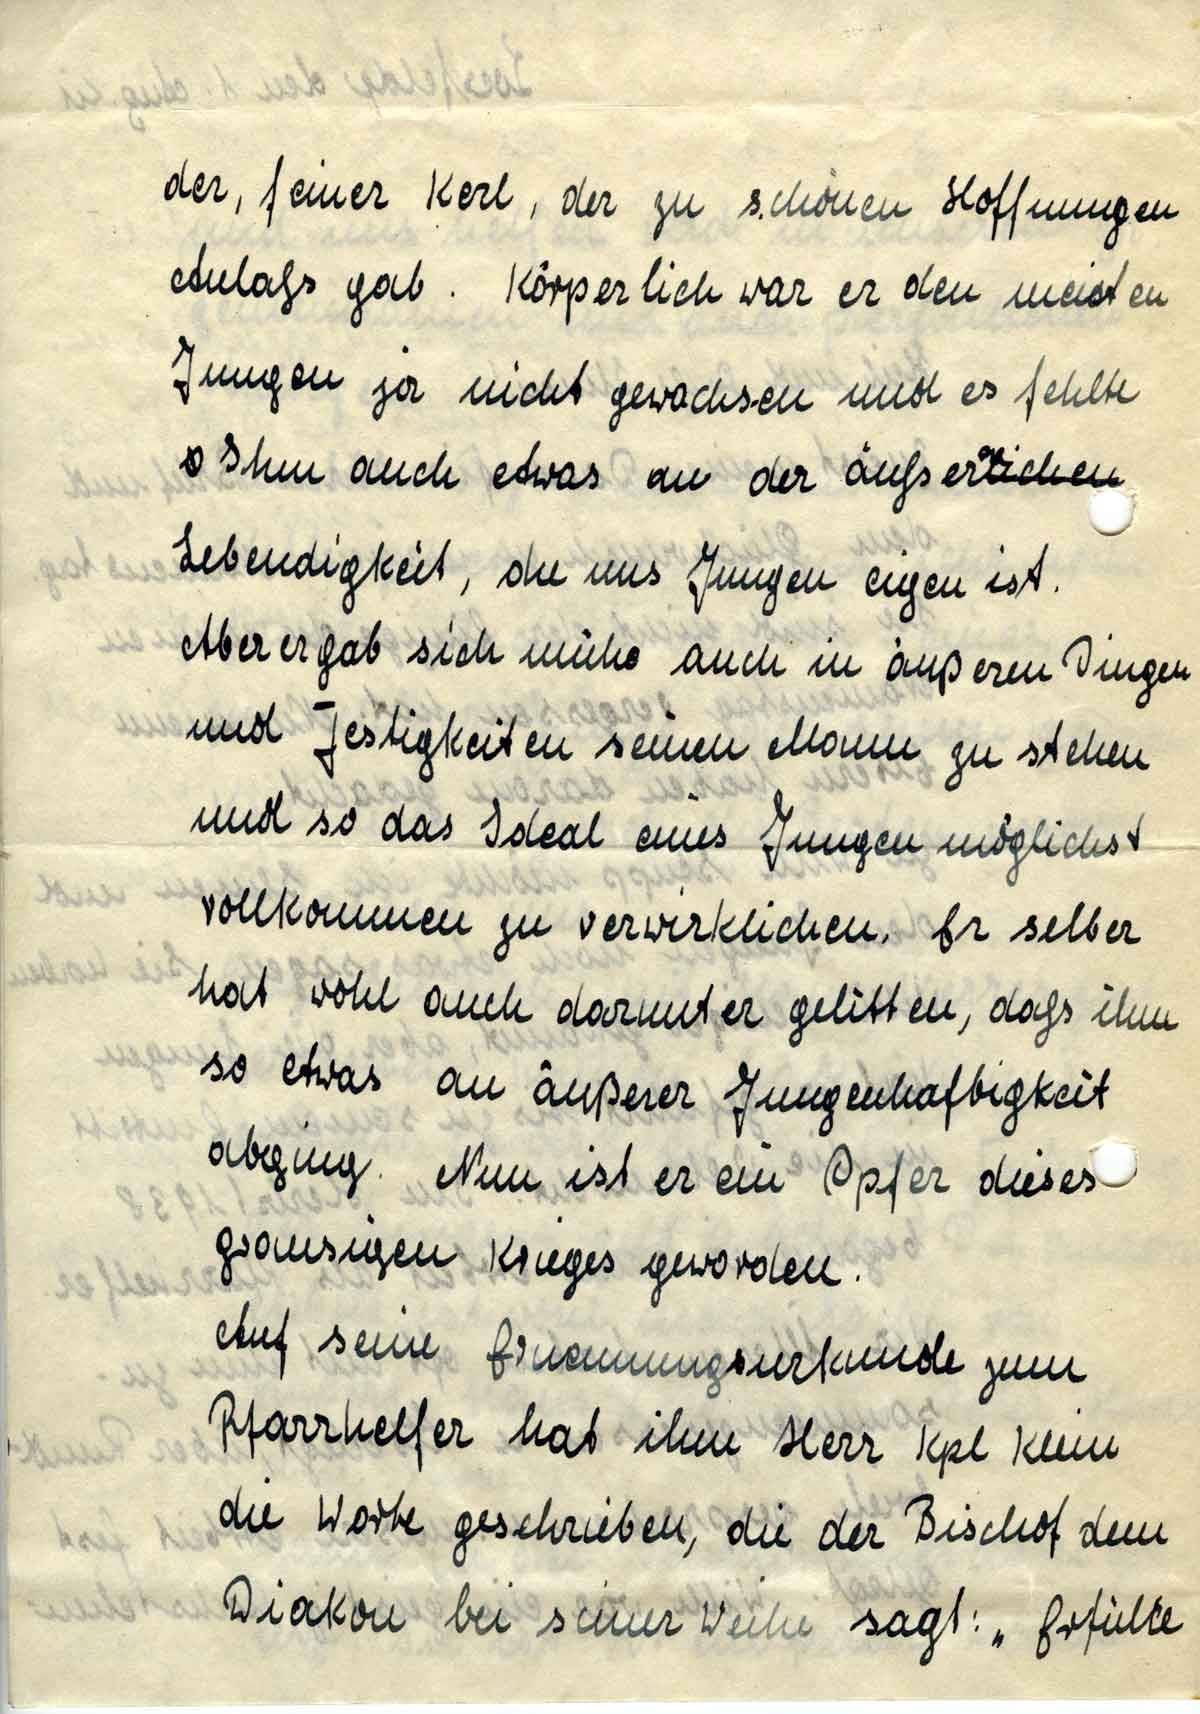 der, feiner Kerl, der zu schönen Hoffnungen
Anlaß gab. Körperlich war er den meisten
Jungen ja nicht gewachsen und es fehlte
Ihm auch etwas an der äußeren
Lebendigkeit, die uns Jungen eigen ist.
Aber er gab sich mühe auch in äußeren Dingen
und Festigkeiten seinen Mann zu stehen
und so das Ideal eines Jungen möglichst
vollkommen zu verwirklichen. Er selber
hat wohl auch darunter gelitten, daß ihm
so etwas an äußerer Jungenhaftigkeit
abging. Nun ist er ein Opfer dieses
grausigen Krieges geworden.
Auf seine Ernennungsurkunde zum
Pfarrhelfer hat ihm Herr Kpl Klein
die Worte geschrieben, die der Bischof dem
Diakon bei seiner Weihe sagt: „Erfülle